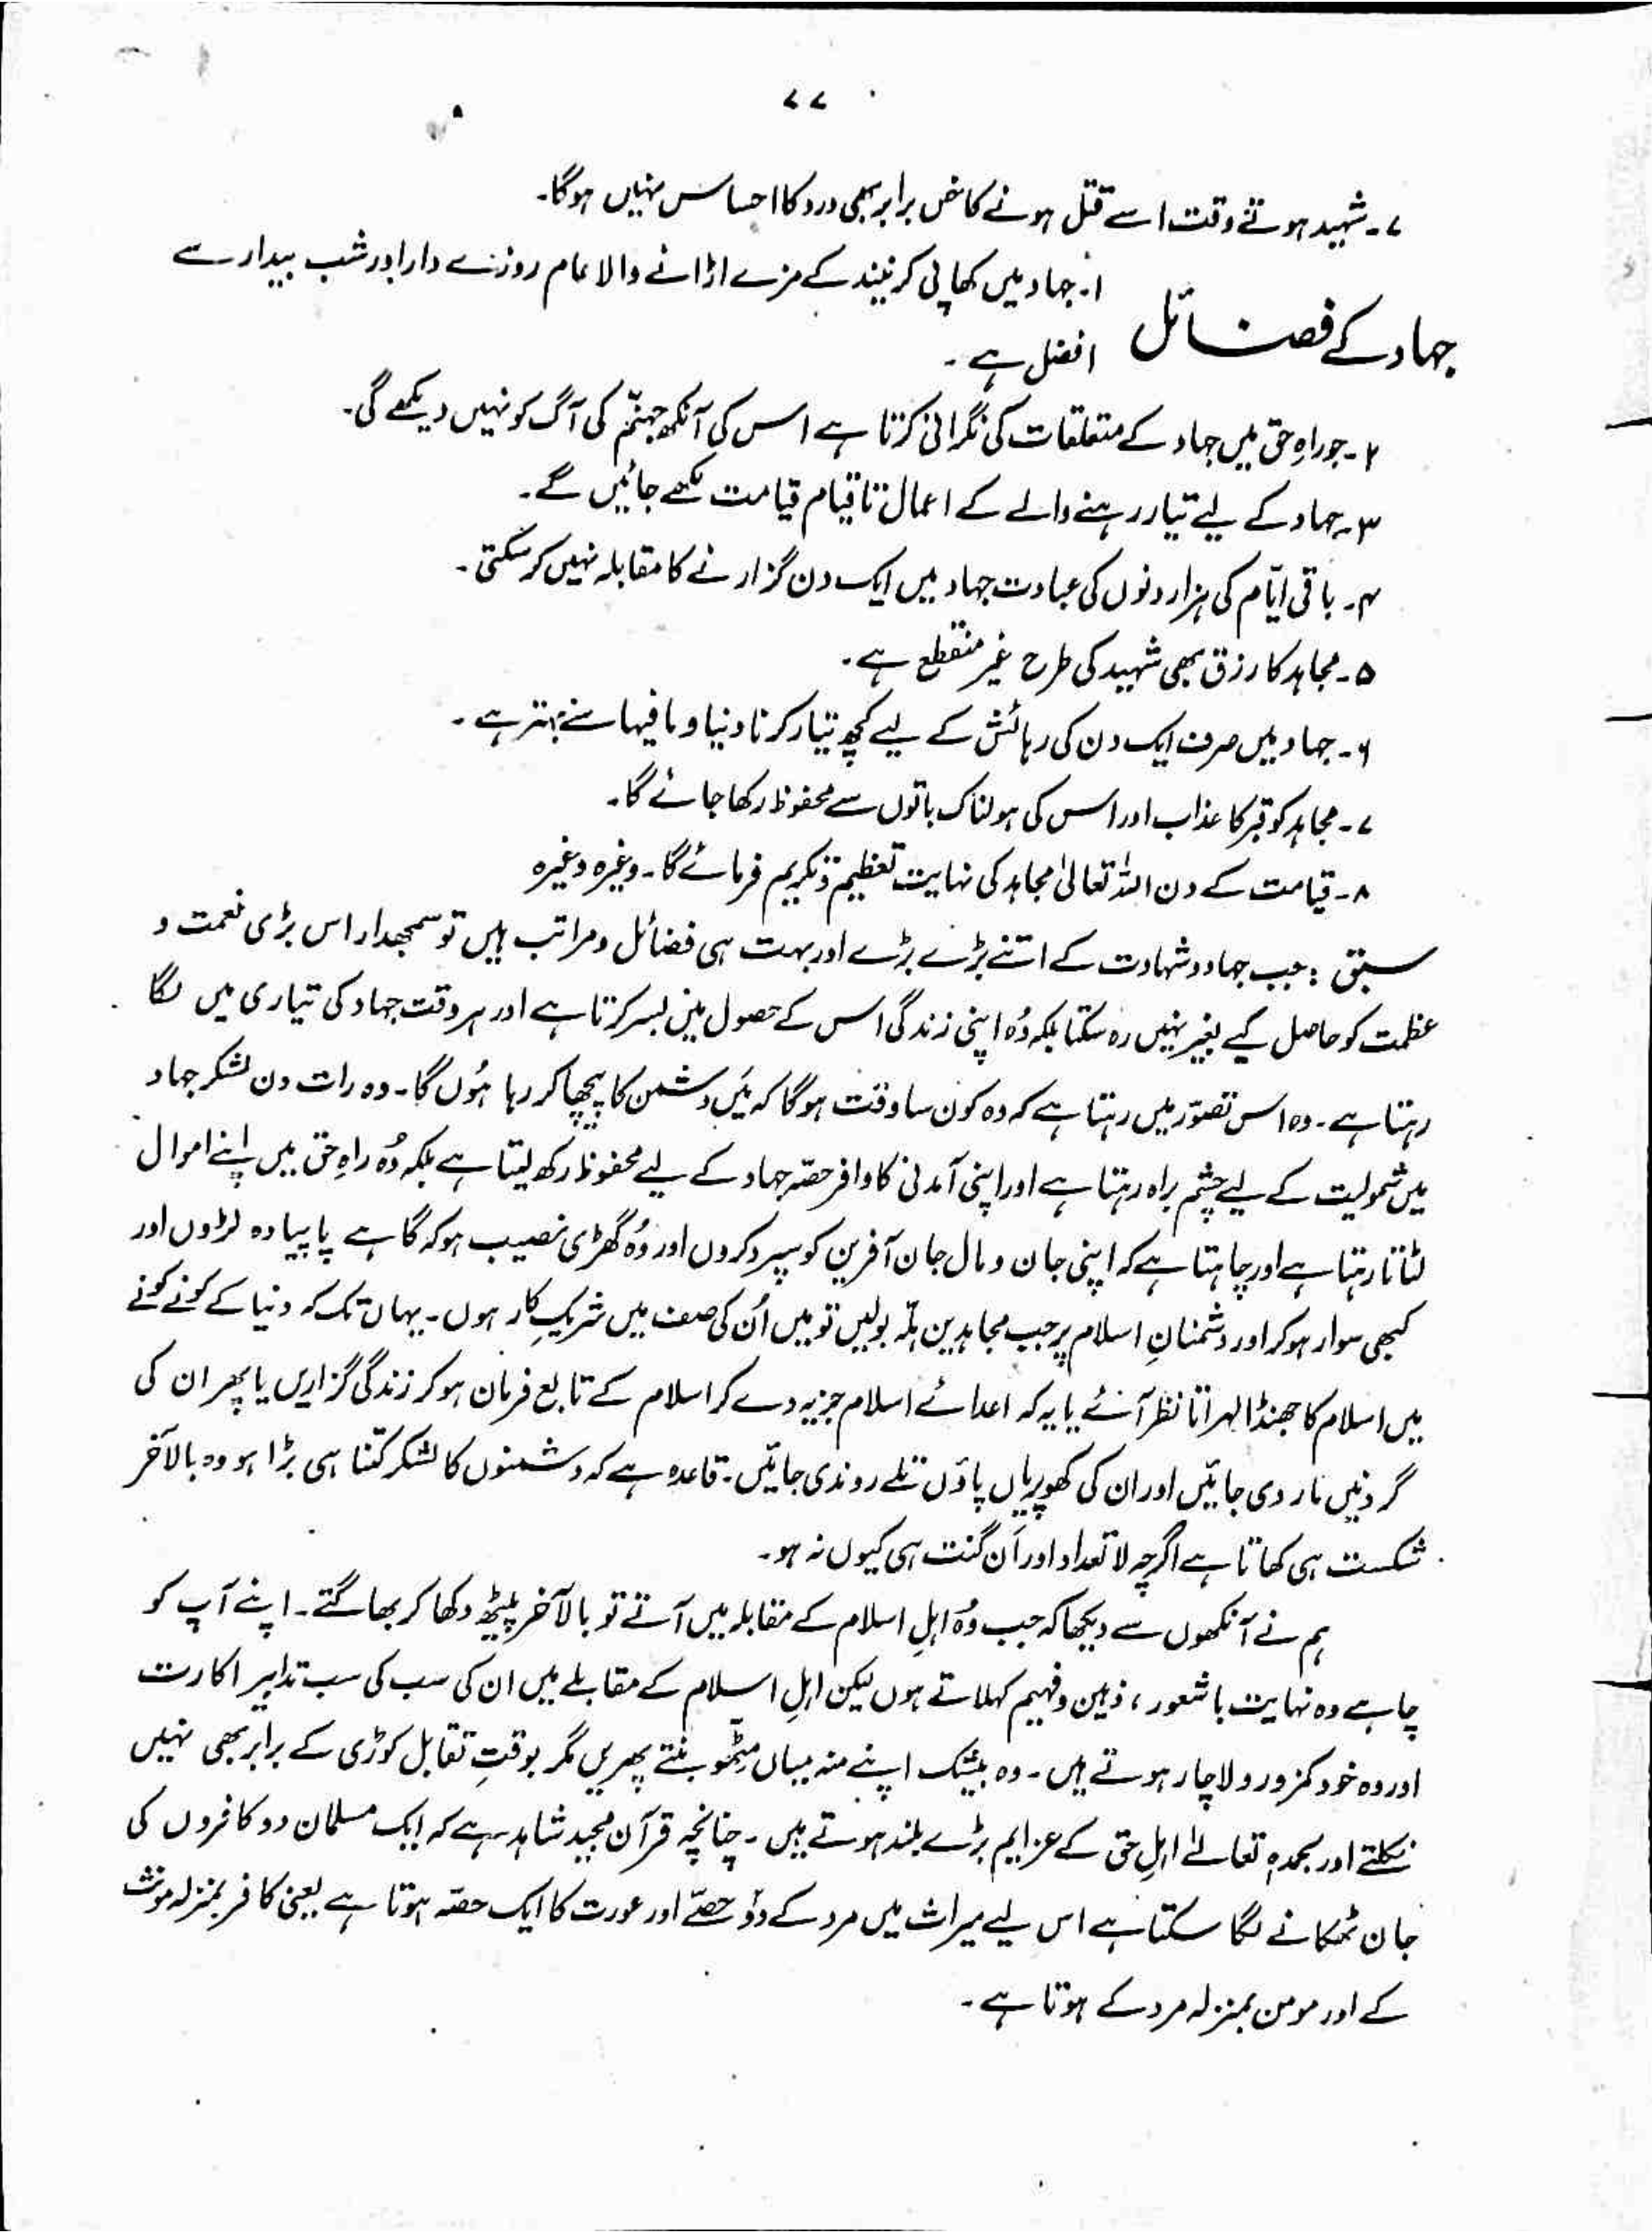 ۷۷
۷۔ شہید ہوتے وقت اسے قتل ہونے کا خس برابر بھی درد کا احساس نہیں ہوگا۔
جہاد کے فضائل
۱۔ جہاد میں کھا پی کر نیند کے مزے اڑانے والا عام روزے دار اور شب بیدار سے
افضل ہے۔
۲۔ جو راہِ حق میں جہاد کے متعلقات کی نگرانی کرتا ہے اس کی آنکھ جہنّم کی آگ کو نہیں دیکھے گی۔
۳۔ جہاد کے لیے تیار رہنے والے کے اعمال تا قیام قیامت لکھے جائیں گے۔
۴۔ باقی ایّام کی ہزار دنوں کی عبادت جہاد میں ایک دن گزارنے کا مقابلہ نہیں کر سکتی۔
۵۔ مجاہد کا رزق بھی شہید کی طرح غیر منقطع ہے۔
۶۔ جہاد میں صرف ایک دن کی رہائش کے لیے کچھ تیار کرنا دنیا و ما فیہا سے بہتر ہے۔
۷۔ مجاہد کو قبر کا عذاب اور اس کی ہولناک باتوں سے محفوظ رکھا جائے گا۔
۸۔ قیامت کے دن اللہ تعالیٰ مجاہد کی نہایت تعظیم و تکریم فرمائے گا۔ وغیرہ وغیرہ
سبق : جب جہاد و شہادت کے اتنے بڑے بڑے اور بہت ہی فضائل و مراتب ہیں تو سمجھدار اس بڑی نعمت و
عظمت کو حاصل کیے بغیر نہیں رہ سکتا بلکہ وُہ اپنی زندگی اس کے حصول میں بسر کرتا ہے اور ہر وقت جہاد کی تیاری میں لگا
رہتا ہے۔ وہ اس تصوّر میں رہتا ہے کہ وہ کون سا وقت ہوگا کہ مَیں دشمن کا پیچھا کر رہا ہُوں گا۔ وہ رات دن لشکر جہاد
میں شمولیت کے لیے چشم براہ رہتا ہے اور اپنی آمدنی کا وافر حصّہ جہاد کے لیے محفوظ رکھ لیتا ہے بلکہ وُہ راہِ حق میں اپنے اموال
لٹاتا رہتا ہے اور چاہتا ہے کہ اپنی جان و مال جان آفرین کو سپرد کروں اور وُہ گھڑی نصیب ہو کہ گاہے پا پیادہ لڑوں اور
کبھی سوار ہو کر اور دشمنانِ اسلام پر جب مجاہدین ہلّہ بولیں تو میں اُن کی صف میں شریکِ کار ہوں۔ یہاں تک کہ دنیا کے کونے کونے
میں اسلام کا جھنڈا لہراتا نظر آئے یا یہ کہ اعدائے اسلام جزیہ دے کر اسلام کے تابع فرمان ہو کر زندگی گزاریں یا پھر ان کی
گردنیں مار دی جائیں اور ان کی کھوپریاں پاؤں تلے روندی جائیں۔ قاعدہ ہے کہ دشمنوں کا لشکر کتنا ہی بڑا ہو وہ بالآخر
شکست ہی کھاتا ہے اگرچہ لا تعداد اور اَن گنت ہی کیوں نہ ہو۔
ہم نے آنکھوں سے دیکھا کہ جب وُہ اہلِ اسلام کے مقابلہ میں آتے تو بالآخر پیٹھ دکھا کر بھاگتے۔ اپنے آپ کو
چاہے وہ نہایت با شعور ، ذہین و فہیم کہلاتے ہوں لیکن اہلِ اسلام کے مقابلے میں ان کی سب کی سب تدابیر اکارت
اور وہ خود کمزور و لاچار ہوتے ہیں۔ وہ بیشک اپنے منہ میاں مِٹّھو بنتے پھریں مگر بوقتِ تقابل کوڑی کے برابر بھی نہیں
نکلتے اور بحمدہٖ تعالےٰ اہلِ حق کے عزایم بڑے بلند ہوتے ہیں۔ چنانچہ قرآن مجید شاہد ہے کہ ایک مسلمان دو کافروں کی
جان ٹھکانے لگا سکتا ہے اس لیے میراث میں مرد کے دوٗ حصّے اور عورت کا ایک حصّہ ہوتا ہے یعنی کافر بمنزلہ مونث
کے اور مومن بمنزلہ مرد کے ہوتا ہے۔